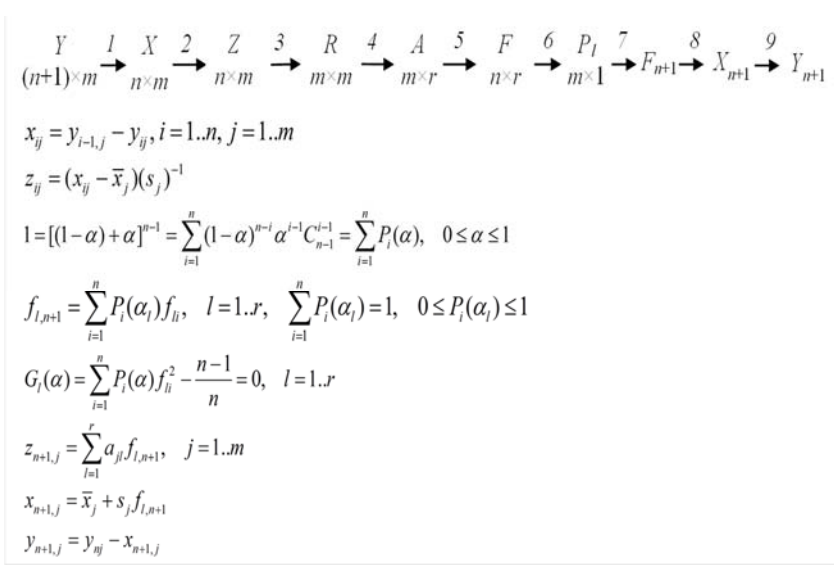 Y 1 X 2 Z 3 R 4 A 5 F 6 P_l 7 F_{n+1} 8 X_{n+1} 9 Y_{n+1}
(n+1)×m → n×m → n×m → m×m → m×r → n×r → m×1 → → →
x_{ij} = y_{i−1,j} − y_{ij}, i = 1..n, j = 1..m
z_{ij} = (x_{ij} − x̄_j)(s_j)^{−1}
1 = [(1−α)+α]^{n−1} = ∑_{i=1}^{n} (1−α)^{n−i} α^{i−1} C_{n−1}^{i−1} = ∑_{i=1}^{n} P_i(α), 0 ≤ α ≤ 1
f_{l,n+1} = ∑_{i=1}^{n} P_i(α_l) f_{li}, l = 1..r, ∑_{i=1}^{n} P_i(α_l) = 1, 0 ≤ P_i(α_l) ≤ 1
G_l(α) = ∑_{i=1}^{n} P_i(α) f_{li}^2 − \frac{n−1}{n} = 0, l = 1..r
z_{n+1,j} = ∑_{l=1}^{r} a_{jl} f_{l,n+1}, j = 1..m
x_{n+1,j} = x̄_j + s_j f_{l,n+1}
y_{n+1,j} = y_{nj} − x_{n+1,j}